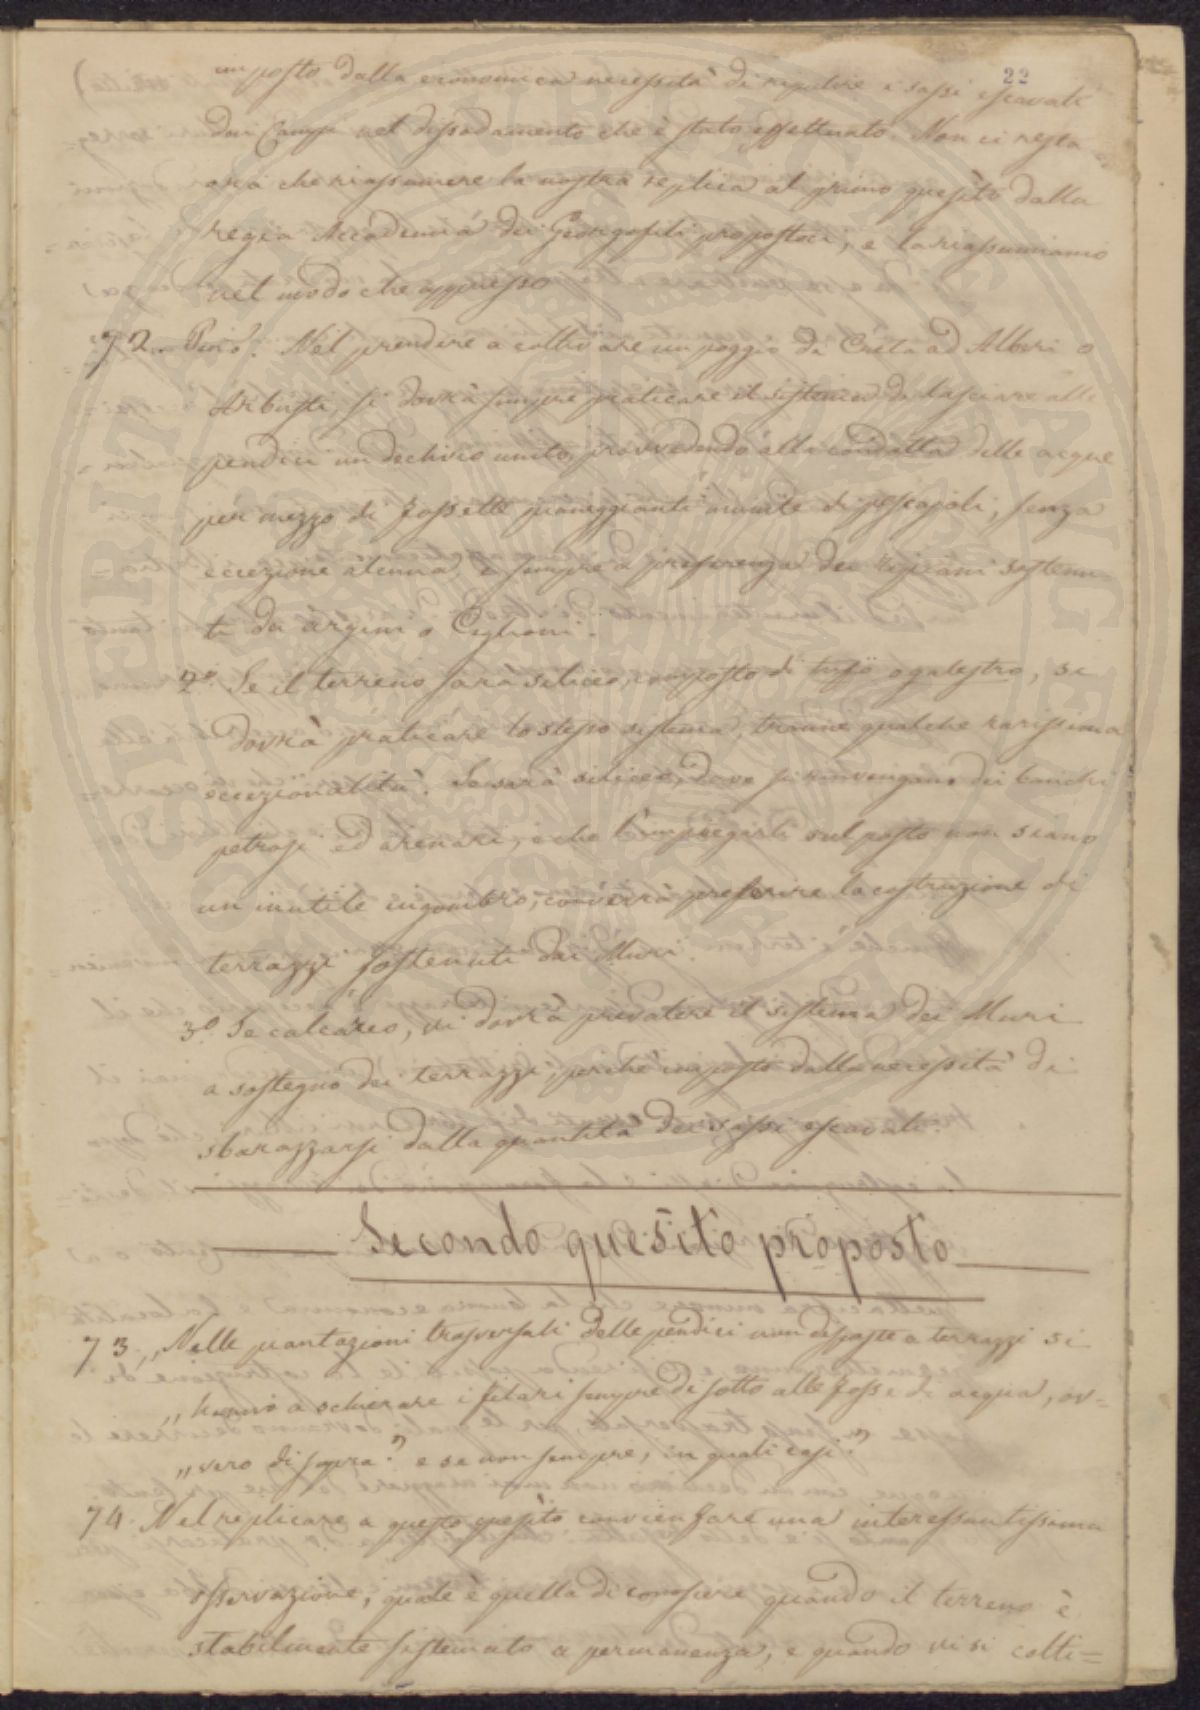 22
imposto dalla economica necessità di ripulire i sassi escavati
dai Campi nel dissodamento che è stato effettuato. Non ci resta
ora che riassumere la nostra replica al primo quesito dalla
regia Accademia dei Georgofili propostoci, e la riassumiamo
nel modo che appresso
72. Primo. Nel prendere a coltivare un poggio di Creta ad Alberi o
Arbusti, si dovrà sempre praticare il sistema di lasciare alle
pendici un declivio unito, provvedendo alla condotta delle acque
per mezzo di fossette pianeggianti munite di pescajoli, senza
eccezione alcuna e sempre a preferenza dei ripiani sostenu=
ti da argini o Ciglioni.
2º. Se il terreno sarà siliceo, composto di tufo o galestro, si
dovrà praticare lo stesso sistema, tranne qualche rarissima
eccezionalità. Se sarà siliceo, dove si rinvengano dei banchi
petrosi ed arenari, e che l'impiegarli sul posto non siano
un inutile ingombro, converrà preferire la costruzione di
terrazzi sostenuti dai Muri.
3º. Se calcareo, vi dovrà prevalere il sistema dei Muri
a sostegno dei terrazzi, perché imposto dalla necessità di
sbarazzarsi dalla quantità dei sassi escavati.
Secondo quesito proposto
73. „Nelle piantazioni trasversali delle pendici non disposte a terrazzi si
„hanno a schierare i filari sempre di sotto alle fosse di acqua, ov=
„vero di sopra? e se non sempre, in quali casi?
74. Nel replicare a questo quesito convien fare una interessantissima
osservazione, quale è quella di conoscere quando il terreno è
stabilmente sistemato a permanenza, e quando vi si colti=